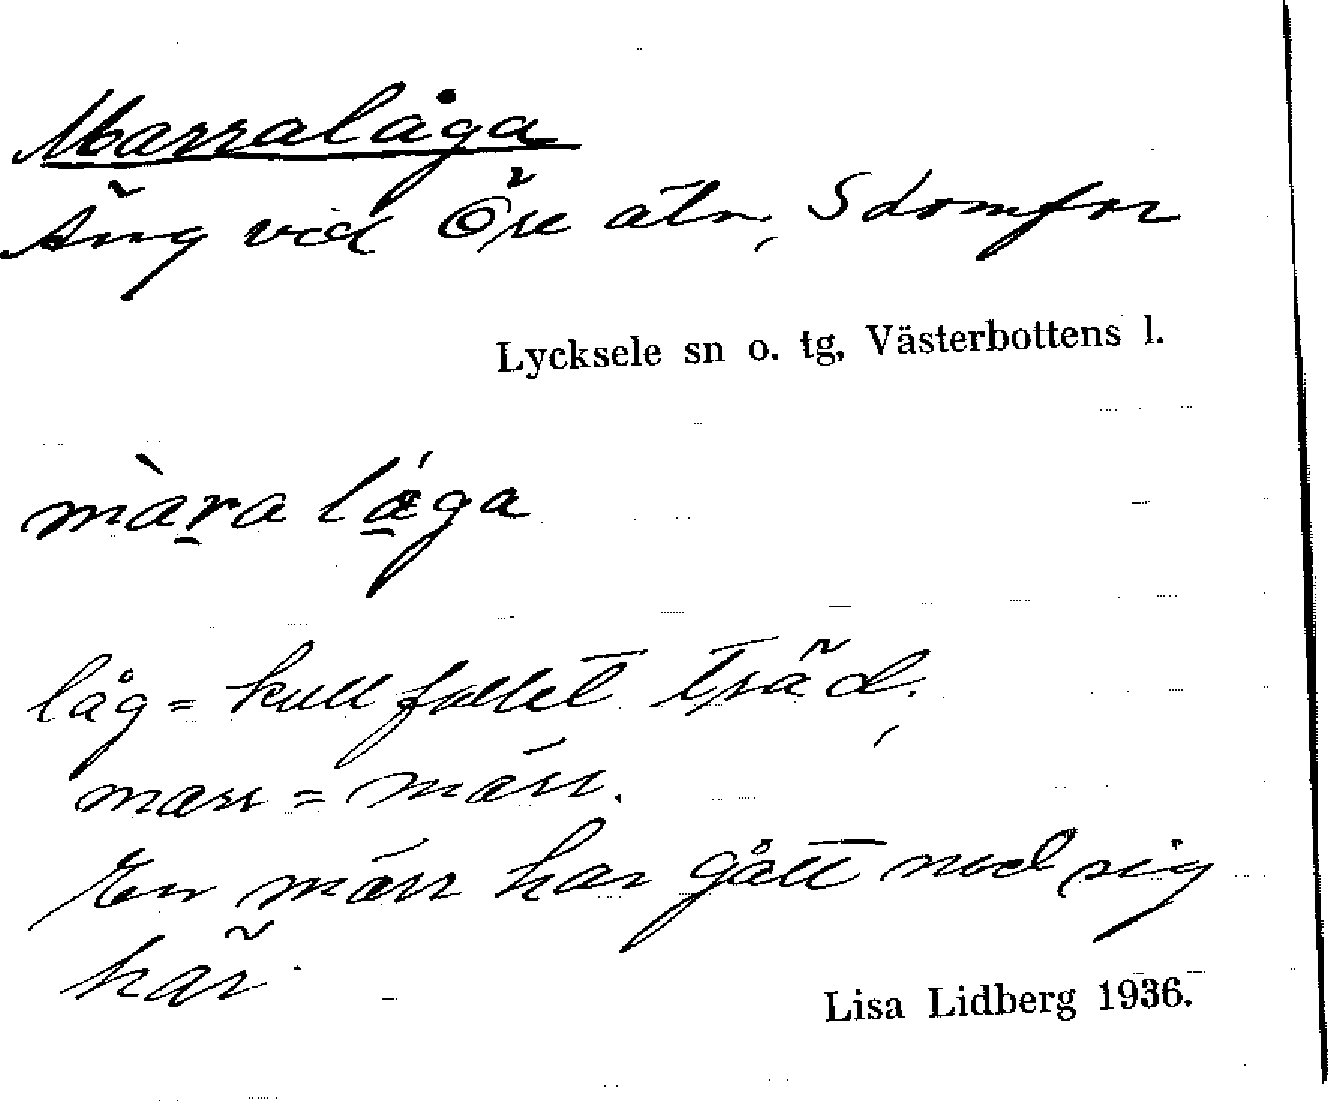 Marralåga
Äng vid Öre älv, S domfor
Lycksele sn o. tg, Västerbottens l.
màra lága
låg = kullfallet träd,
marr = märr.
En märr har gått ned sig
här.
Lisa Lidberg 1936.